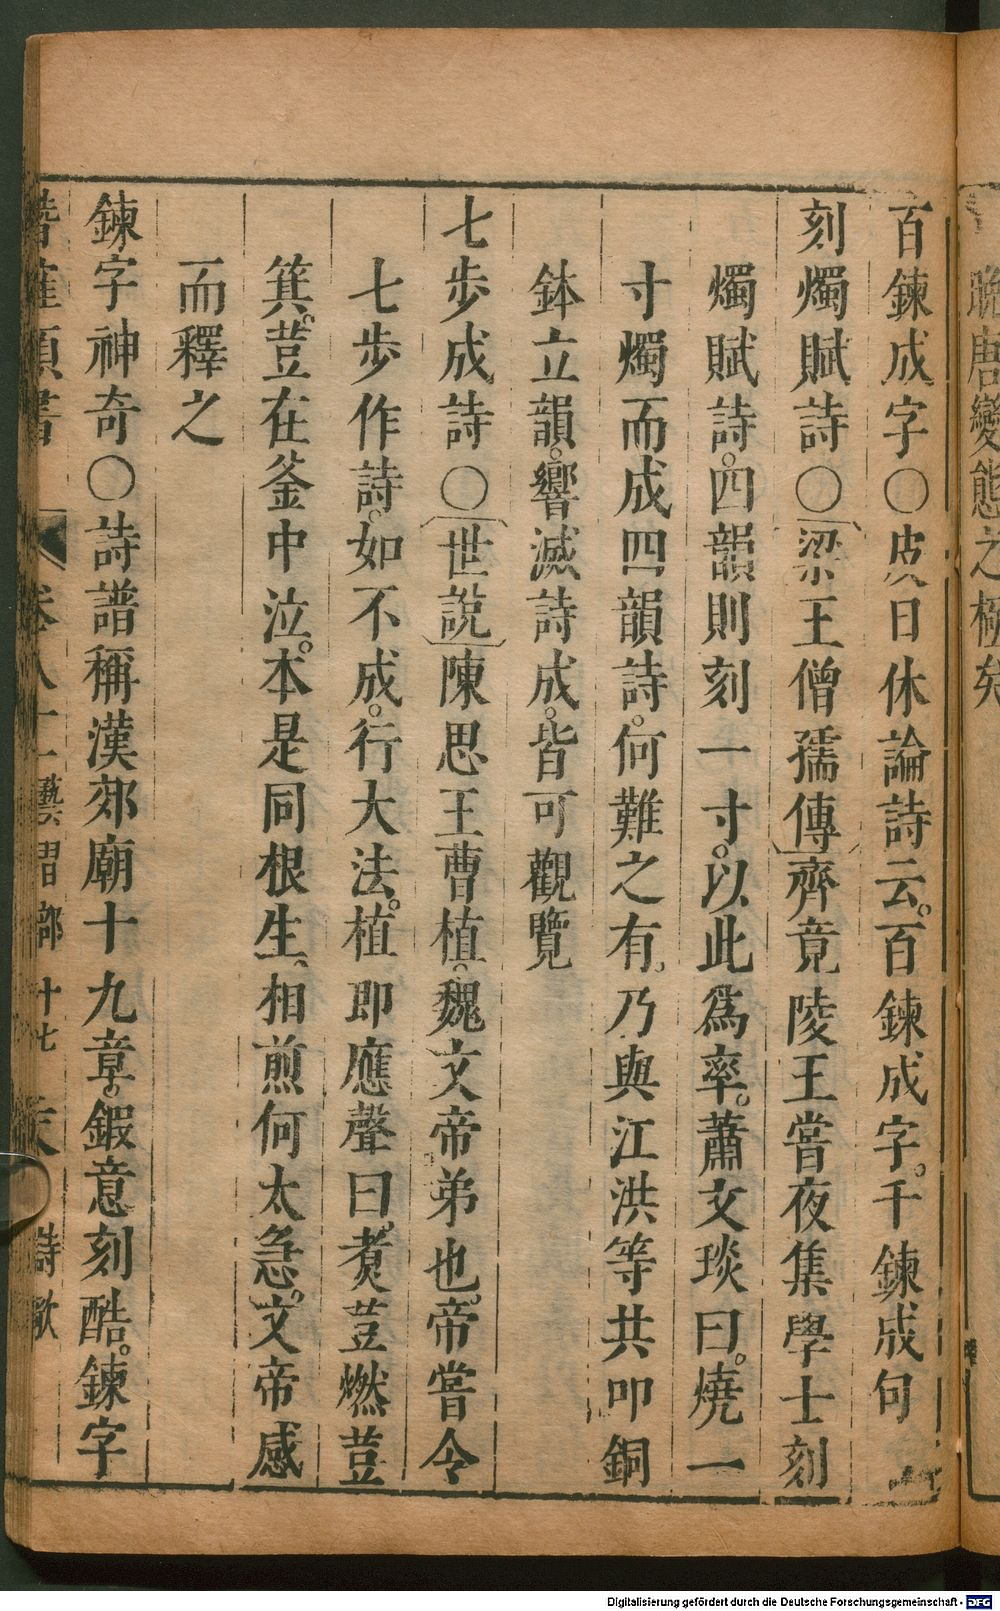 晚唐變態之極矣
百鍊成字○皮日休論詩云。百鍊成字。千鍊成句
刻燭賦詩○梁王僧孺傳齊竟陵王嘗夜集學士刻
燭賦詩。四韻則刻一寸。以此爲率。蕭文琰曰。燒一
寸燭而成四韻詩。何難之有。乃與江洪等共叩銅
鉢立韻。響滅詩成。皆可觀覽
七步成詩○世說陳思王曹植。魏文帝弟也。帝嘗令
七步作詩。如不成。行大法。植即應聲曰。煑荳燃荳
箕。荳在釜中泣。本是同根生。相煎何太急。文帝感
而釋之
鍊字神奇○詩譜稱漢郊廟十九章。鍜意刻酷。鍊字
類書 卷八十一藝習部 十七 詩歌
Digitalisierung gefördert durch die Deutsche Forschungsgemeinschaft - DFG